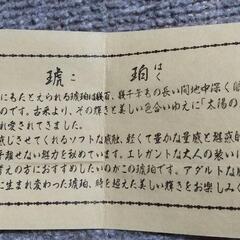 こ はく
琥 珀
にもたとえられる琥珀は数百、数千年もの長い間地中深く
のです。古来より、その輝きと美しい色合いゆえに「太陽の
愛されてきました。
感じさせてくれるソフトな感触、軽くて豊かな量感と魅惑
離せない魅力を秘めています。エレガントな大人の装い
の方におすすめしたいのがこの琥珀です。アダルトな
に生まれ変わった琥珀、時を超えた美しい輝きをお楽しみく